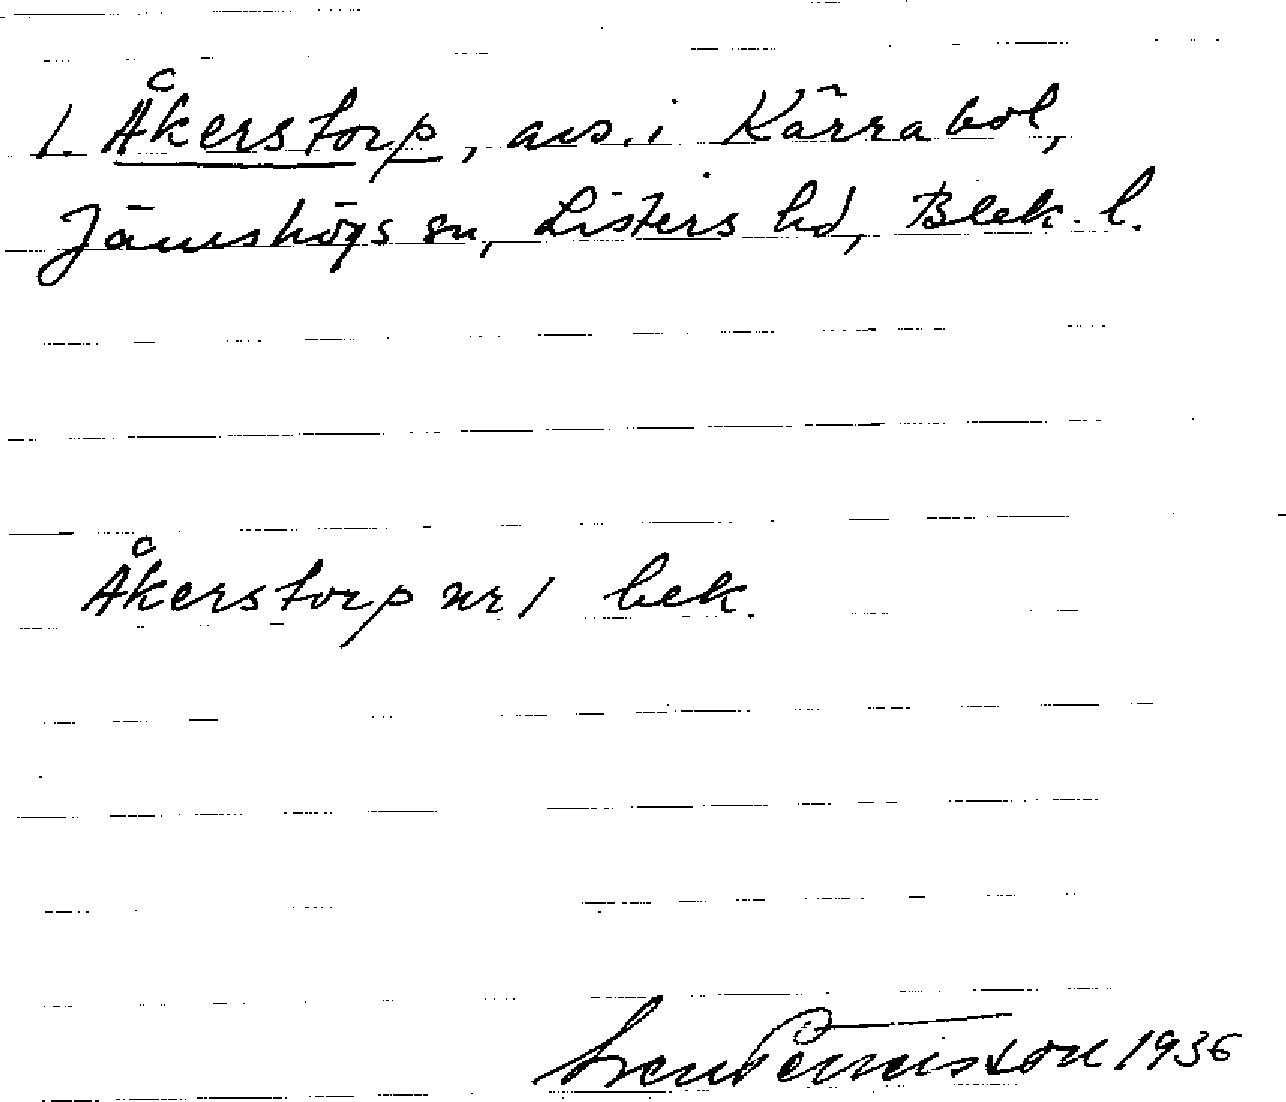 1. Åkerstorp, avs. i Kärrabol,
Jämshögs sn, Listers hd, Blek. l.
Åkerstorp nr 1 bek.
Sven Pernisson 1936